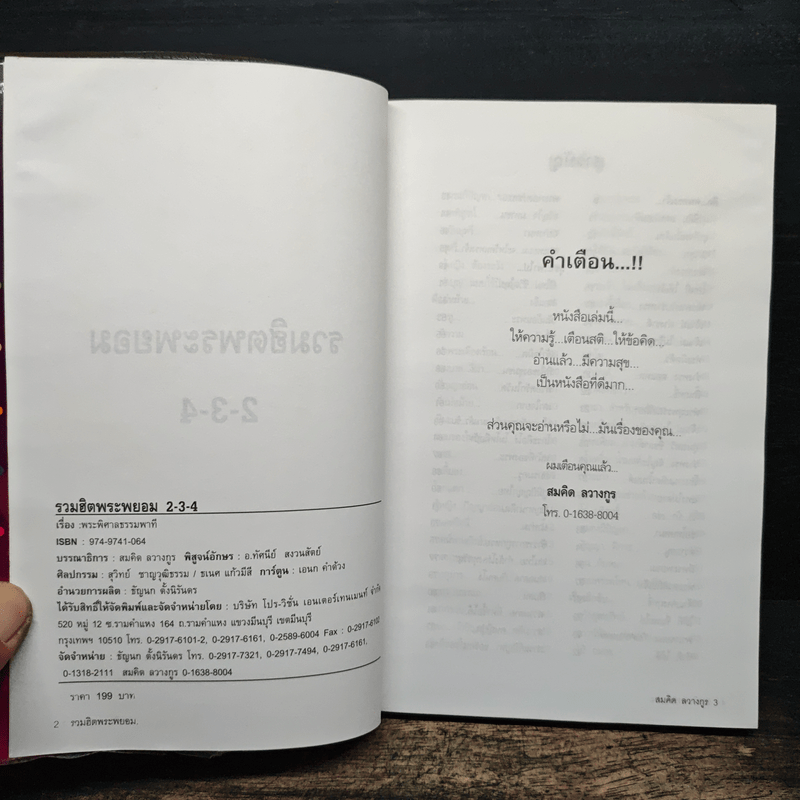 รวมฮิตพระพยอม 2-3-4
เรื่อง :พระพิศาลธรรมพาที
ISBN : 974-9741-064
บรรณาธิการ : สมคิด ลวางกูร พิสูจน์อักษร : อ.ทัศนีย์ สงวนสัตย์
ศิลปกรรม : สุวิทย์ ชาญวุฒิธรรม / ธเนศ แก้วมีสี การ์ตูน : เอนก คำด้วง
อำนวยการผลิต : ธัญนก ตั้งนิรันดร
ได้รับสิทธิ์ให้จัดพิมพ์และจัดจำหน่ายโดย : บริษัท โปร-วิชั่น เอนเตอร์เทนเมนท์ จำกัด
520 หมู่ 12 ซ.รามคำแหง 164 ถ.รามคำแหง แขวงมีนบุรี เขตมีนบุรี
กรุงเทพฯ 10510 โทร. 0-2917-6101-2, 0-2917-6161, 0-2589-6004 Fax : 0-2917-6102
จัดจำหน่าย : ธัญนก ตั้งนิรันดร โทร. 0-2917-7321, 0-2917-7494, 0-2917-6161,
0-1318-2111 สมคิด ลวางกูร 0-1638-8004
ราคา 199 บาท
2 รวมฮิตพระพยอม
คำเตือน...!!
หนังสือเล่มนี้...
ให้ความรู้...เตือนสติ...ให้ข้อคิด...
อ่านแล้ว...มีความสุข...
เป็นหนังสือที่ดีมาก...
ส่วนคุณจะอ่านหรือไม่...มันเรื่องของคุณ...
ผมเตือนคุณแล้ว...
สมคิด ลวางกูร
โทร. 0-1638-8004
สมคิด ลวางกูร 3